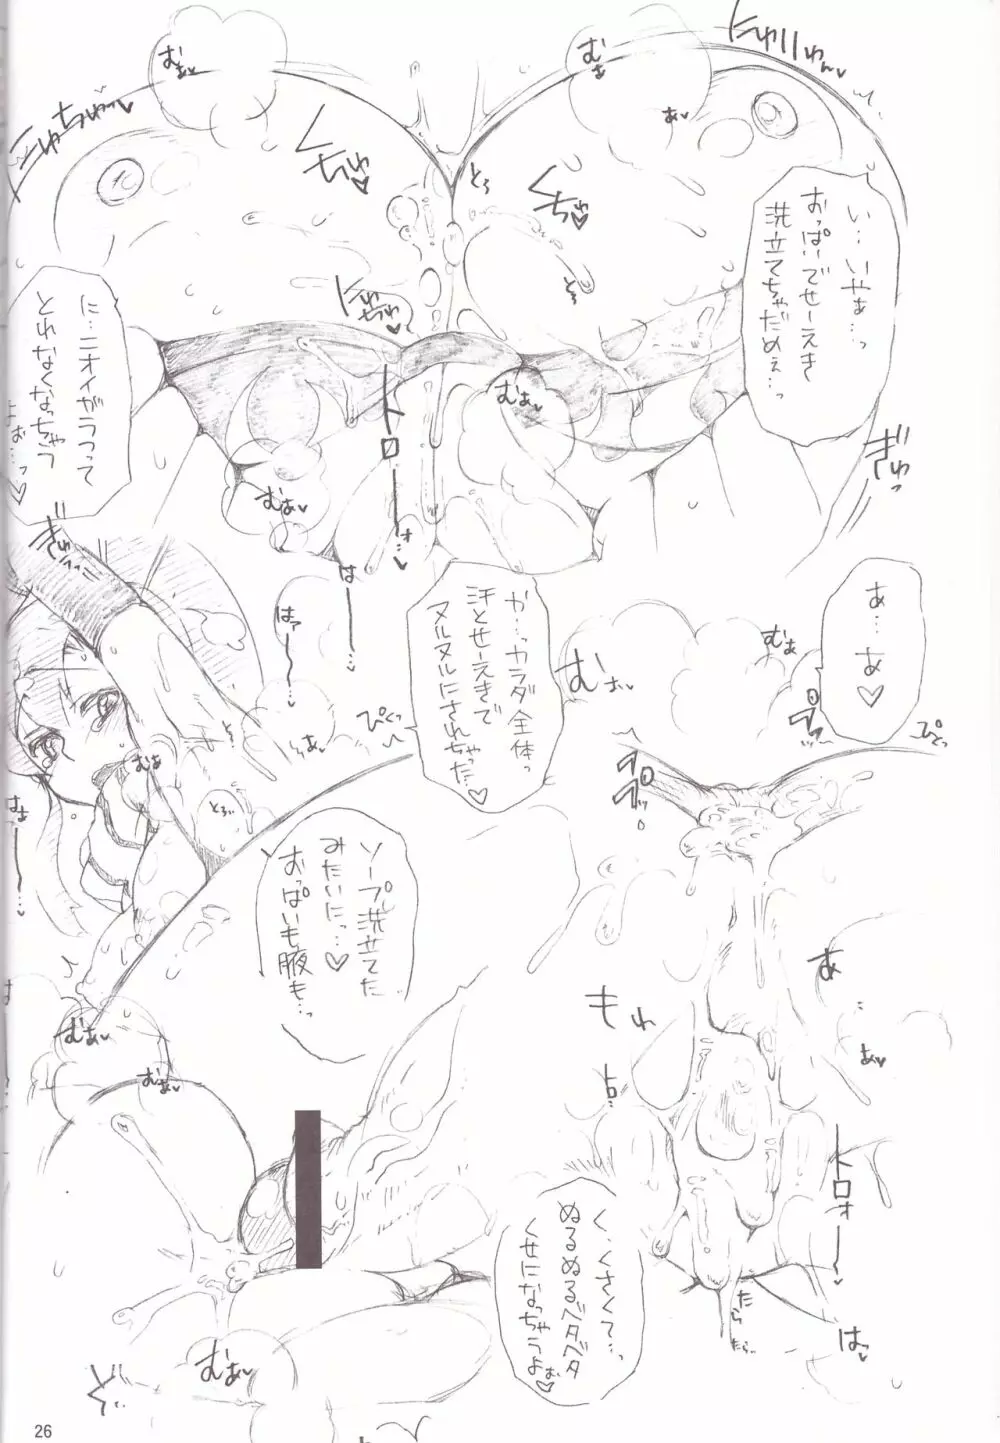 い…いやぁ…っ
おっぱいでせーえき
洗立てちゃだめぇ…っ
に…ニオイがうつって
とれなくなっちゃう
よぉ…っ♡
むぁ♥
むぁ
ぁ♥
くちゅ♡
くちゅ♡
とろ
とろ
むぁ♥
むぁ♥
トロ
ぎゅっ
ぎゅっ
あ…あ♡
か…っカラダ全体っ
汗とせーえきで
ヌルヌルにされちゃった…♡
はー…
はァー…♥
むぁ
むぁ♥
ぴくっ
ぴとっ
むぁ
とろ
ソープ洗立てた
みたいにっ…♡
おっぱいも腋も…っ
あ
…
あ♥
もわ
トロ
トロォー♥
むぁ♥
むぁ♥
く、くさくて…っ
ぬるぬるベタベタ
くせになっちゃうよぉ♡
たら
たら
はっ♥
むぁ♥
26